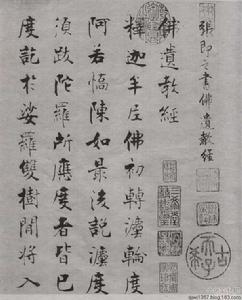 張即之書佛遺教經
佛遺教經
釋迦牟尼佛初轉灋輪度
阿若憍陳如最後說灋度
須跋陀羅所應度者皆已
度訖於娑羅雙樹間將入
三希堂精鑑璽
古希天子